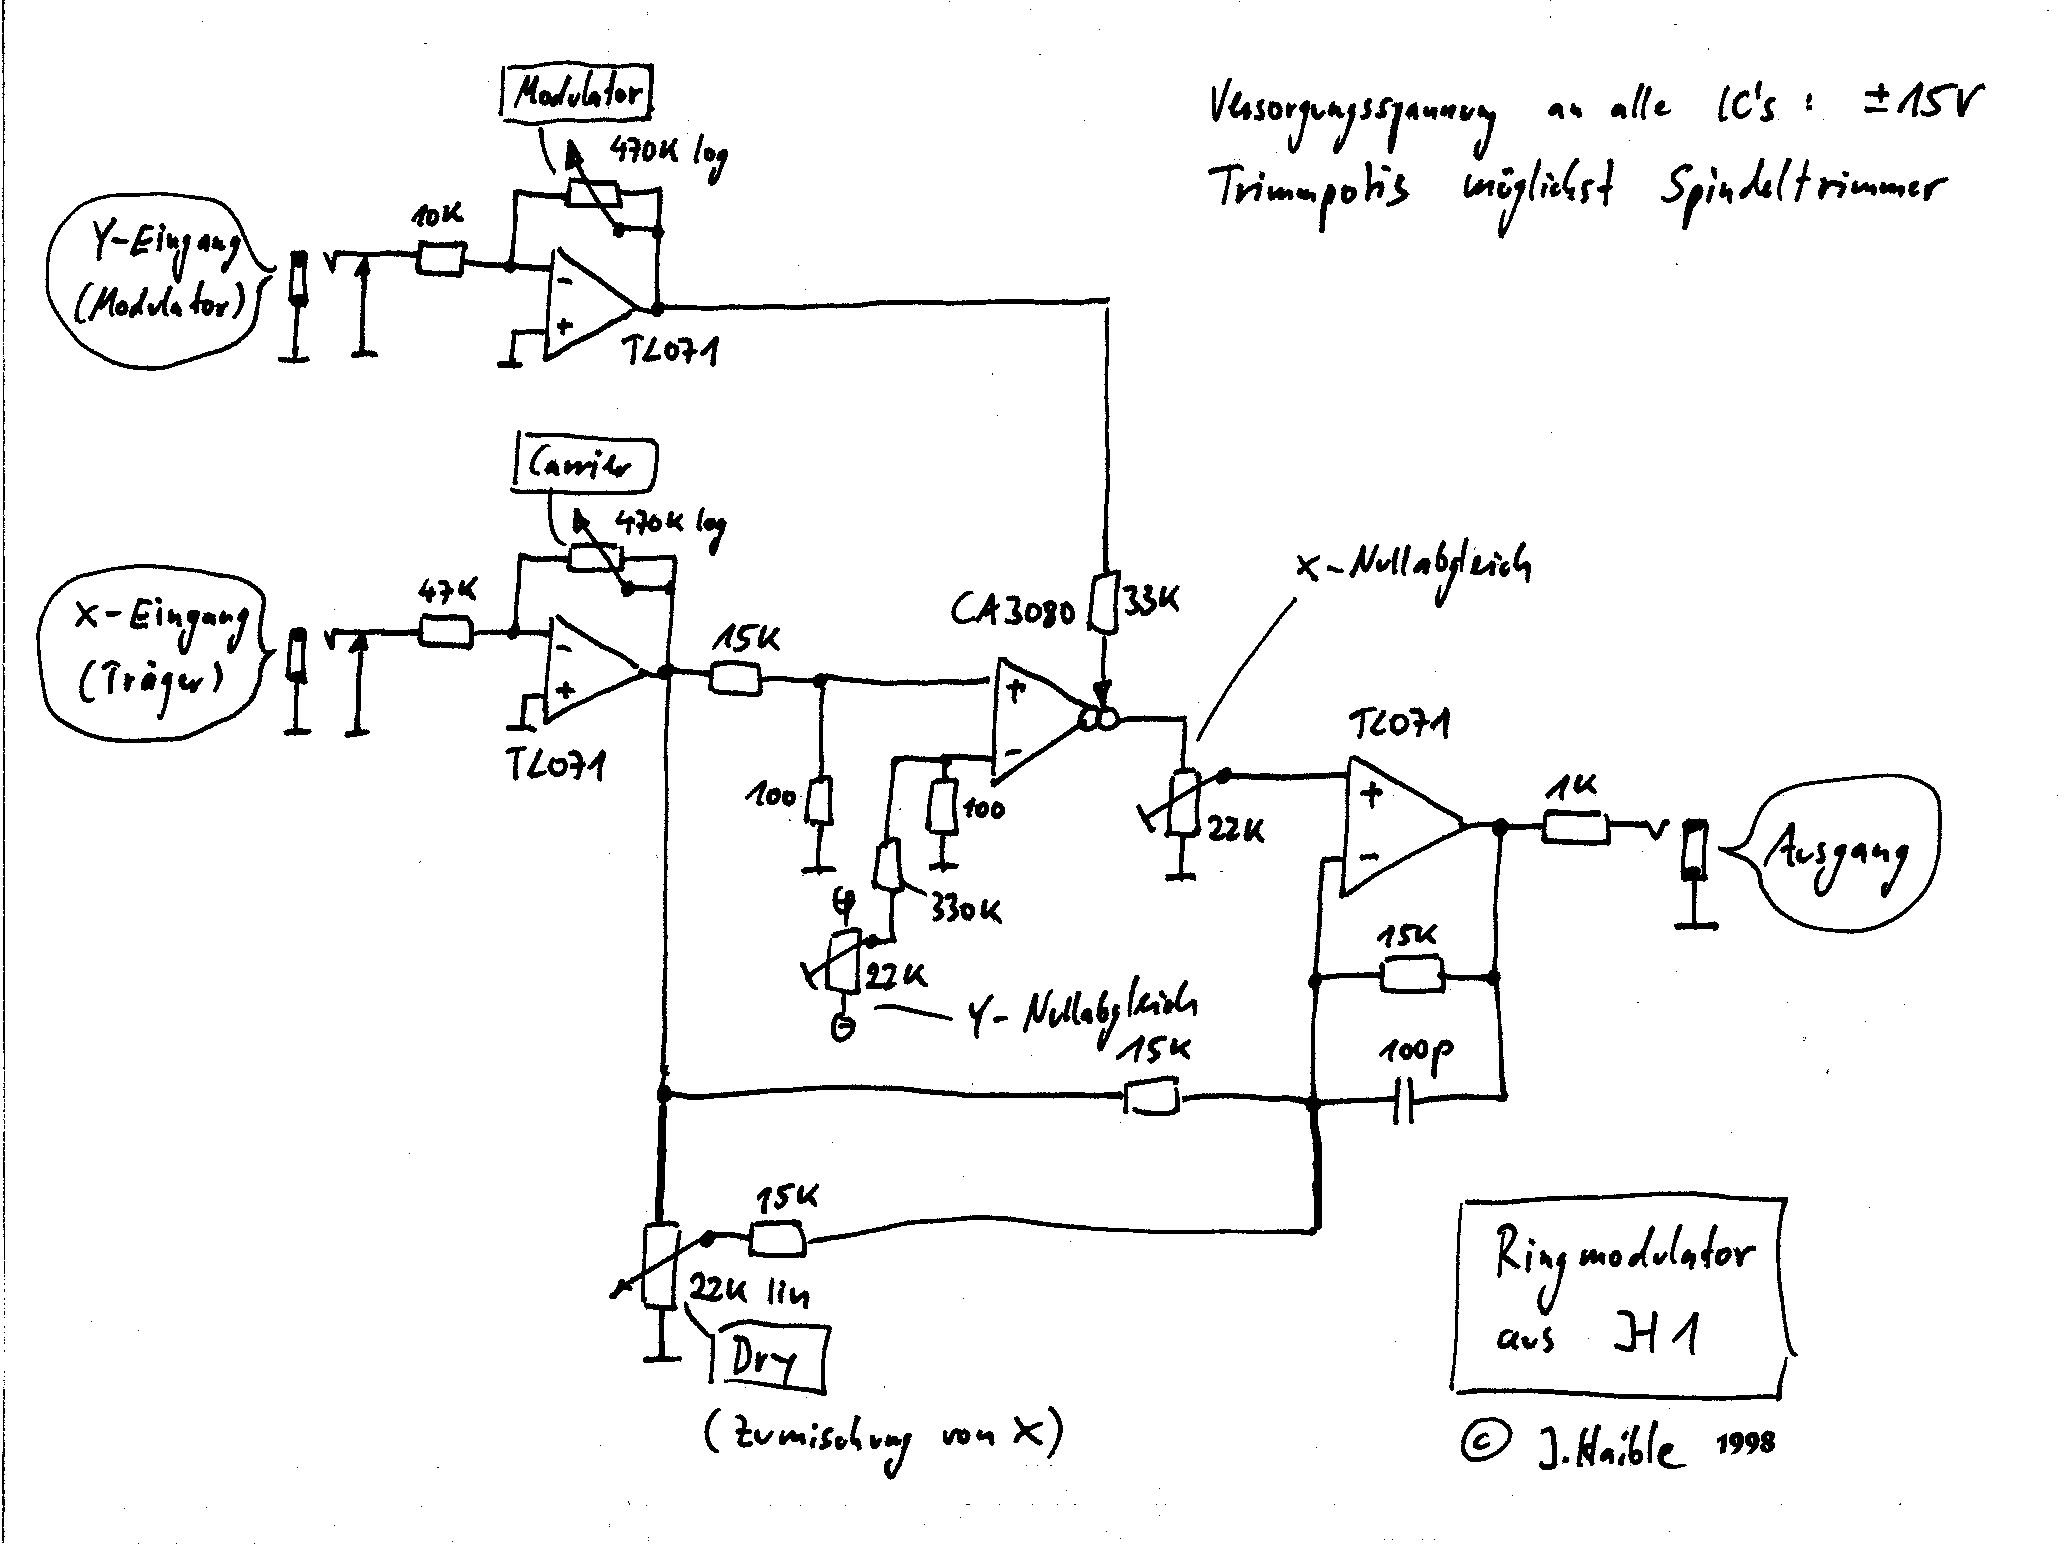 Modulator
470K log
Versorgungsspannung an alle IC's : ±15V
Trimmpotis möglichst Spindeltrimmer
Y-Eingang
(Modulator)
10K
-
+
TL071
Carrier
470K log
X-Eingang
(Träger)
47K
-
+
TL071
15K
100
CA3080
33K
+
-
100
330K
⊕
22K
⊖
Y-Nullabgleich
X-Nullabgleich
22K
TL071
+
-
1K
Ausgang
15K
100p
15K
15K
22K lin
Dry
(Zumischung von X)
Ringmodulator
aus JH1
© J.Haible 1998